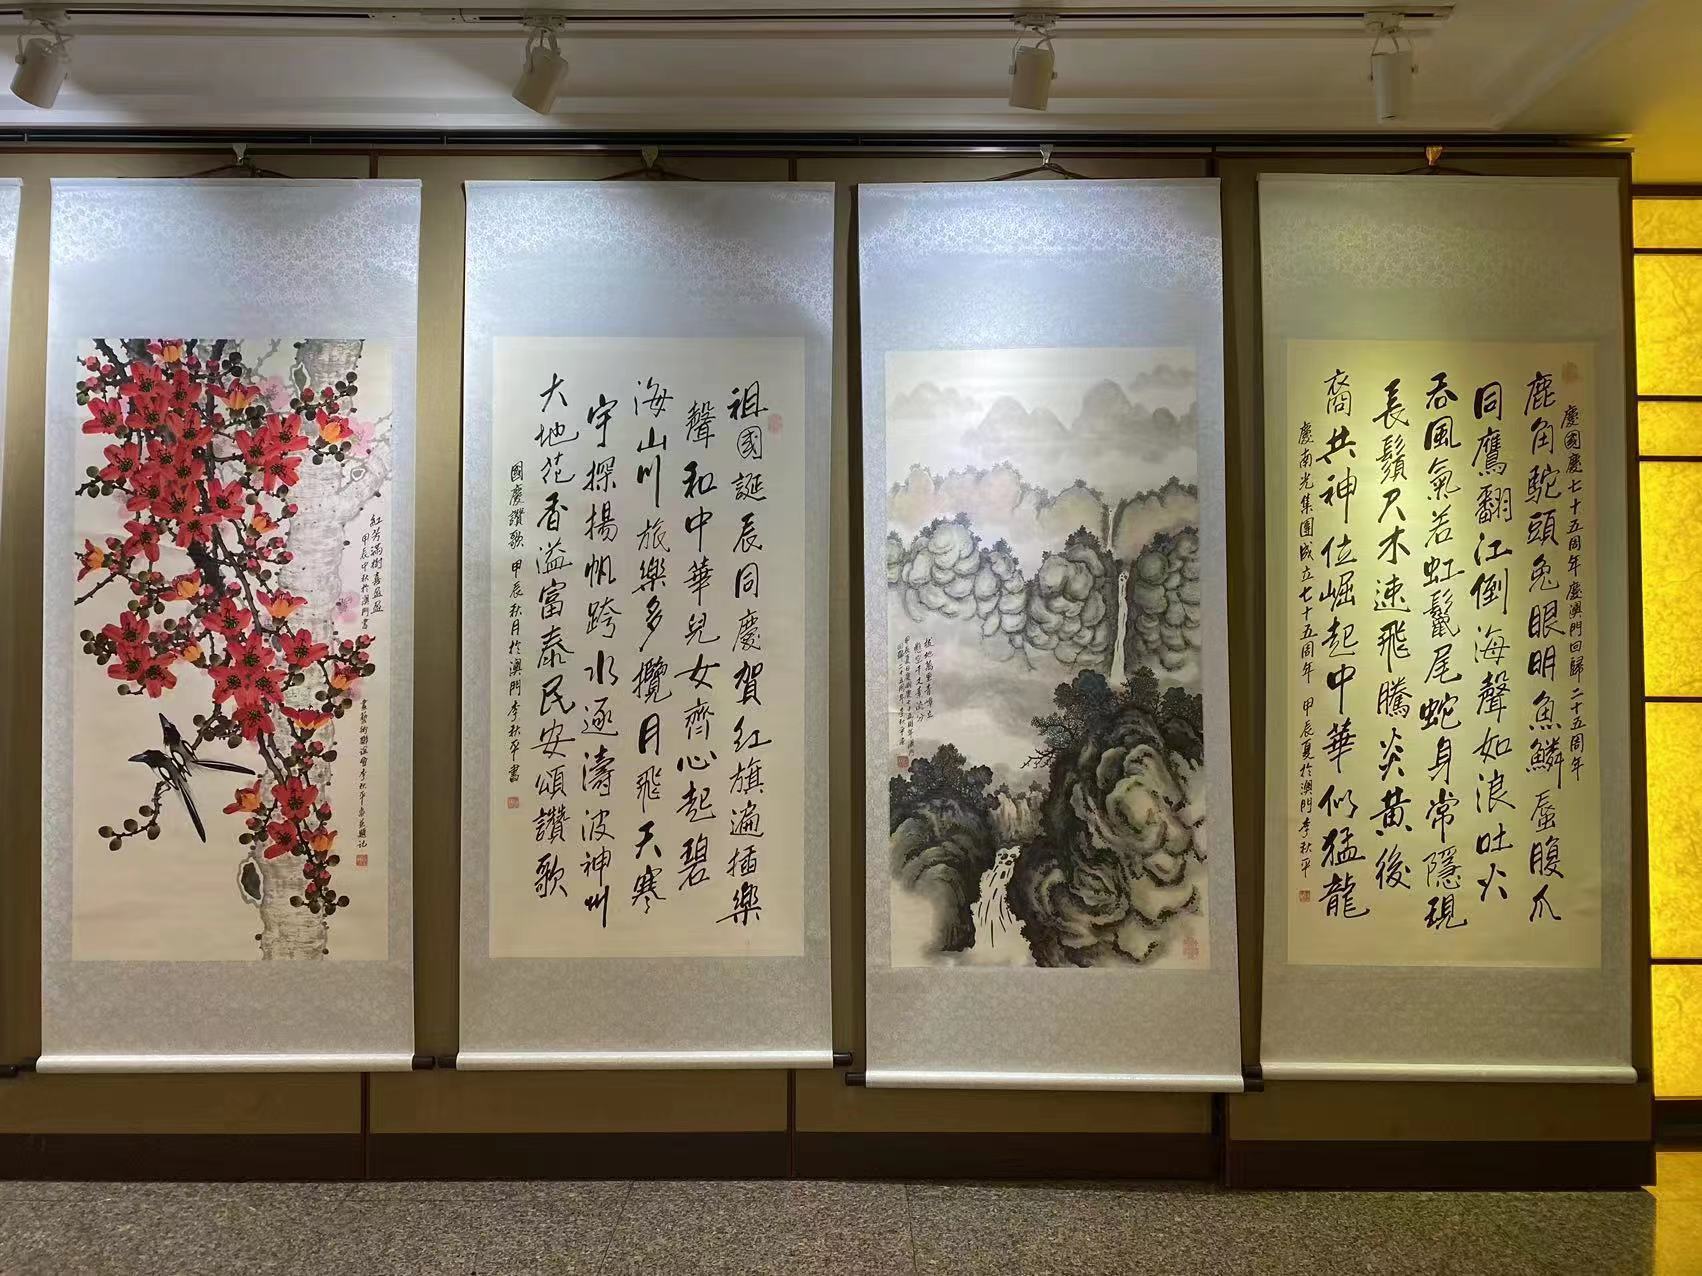 慶國慶七十五周年慶澳門回歸二十五周年
鹿角駝頭兔眼明魚鱗蜃腹爪
同鷹翻江倒海聲如浪吐火
吞風氣若虹鬣尾蛇身常隱現
長鬚尺木速飛騰炎黃後
裔共神位崛起中華似猛龍
慶南光集團成立七十五周年 甲辰夏於澳門李秋平
拔地萬重青嶂立
懸空千丈素流分
甲辰夏日慶國慶七十五周年澳門
二十五周年李秋平
祖國誕辰同慶賀紅旗遍插樂
聲和中華兒女齊心起碧
海山川旅樂多攬月飛天寒
宇探揚帆跨水逐濤波神州
大地花香溢富泰民安頌讚歌
國慶讚歌 甲辰秋月於澳門 李秋平書
紅芳滿樹喜盈盈
甲辰中秋於澳門書
畫藝術聯誼會李秋平並題記